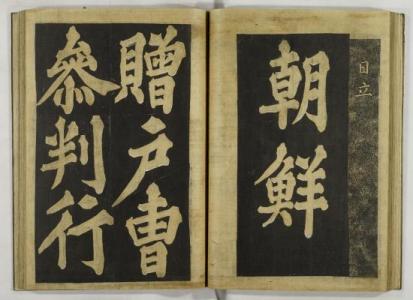 日立
朝鮮
贈戶曺
參判行